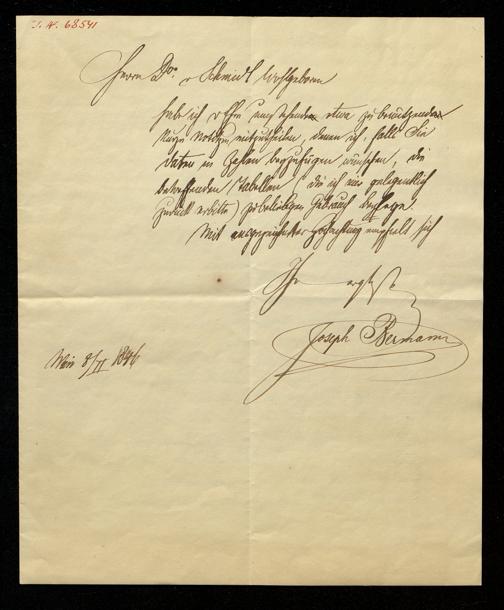 J. N. 68541
Herrn Dr. v Schmidl Wohlgeboren
habe ich etwa zu benützenden
kurze Notizen mitzutheilen, denen ich, falls Sie
Daten in Zahlen beyzufügen wünschen, die
betreffenden Tabellen, die ich mir gelegentlich
zurück erbitte, zu beliebigem Gebrauch beylege.
Mit ausgezeichneter Hochachtung empfiehlt sich
Ihr ergbst
Joseph Bermann
Wien 8/II 1846